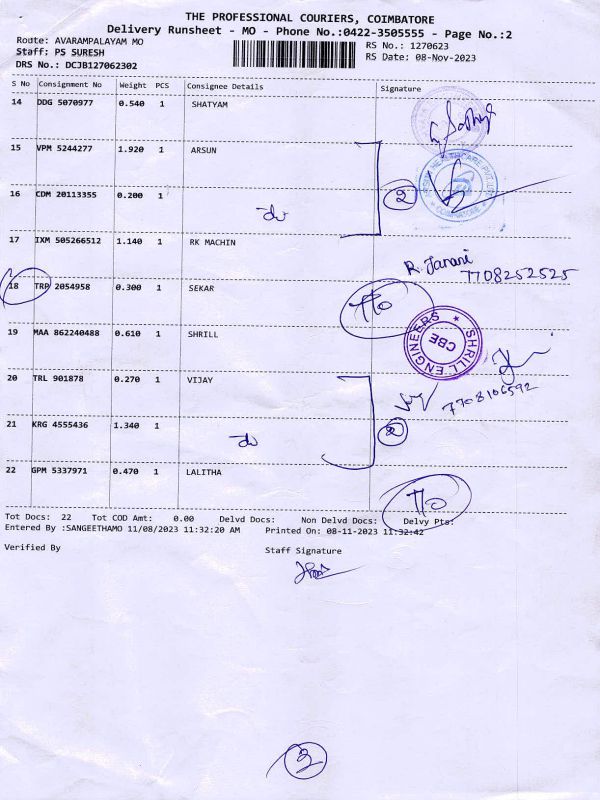 THE PROFESSIONAL COURIERS, COIMBATORE
Delivery Runsheet - MO - Phone No.:0422-3505555 - Page No.:2
Route: AVARAMPALAYAM MO
RS No.: 1270623
Staff: PS SURESH
RS Date: 08-Nov-2023
DRS No.: DCJB127062302
S No Consignment No Weight PCS Consignee Details Signature
14 DDG 5070977 0.540 1 SHATYAM
15 VPM 5244277 1.920 1 ARSUN
16 CDM 20113355 0.200 1
do 2
17 IXM 505266512 1.140 1 RK MACHIN
R. Jarani
7708252525
18 TRP 2054958 0.300 1 SEKAR
19 MAA 862240488 0.610 1 SHRILL
SHRILL ENGINEERS
CBE
20 TRL 901878 0.270 1 VIJAY
7708106592
21 KRG 4555436 1.340 1
do
22 GPM 5337971 0.470 1 LALITHA
Tot Docs: 22 Tot COD Amt: 0.00 Delvd Docs: Non Delvd Docs: Delvy Pts:
Entered By :SANGEETHAMO 11/08/2023 11:32:20 AM Printed On: 08-11-2023 11:32:42
Verified By Staff Signature